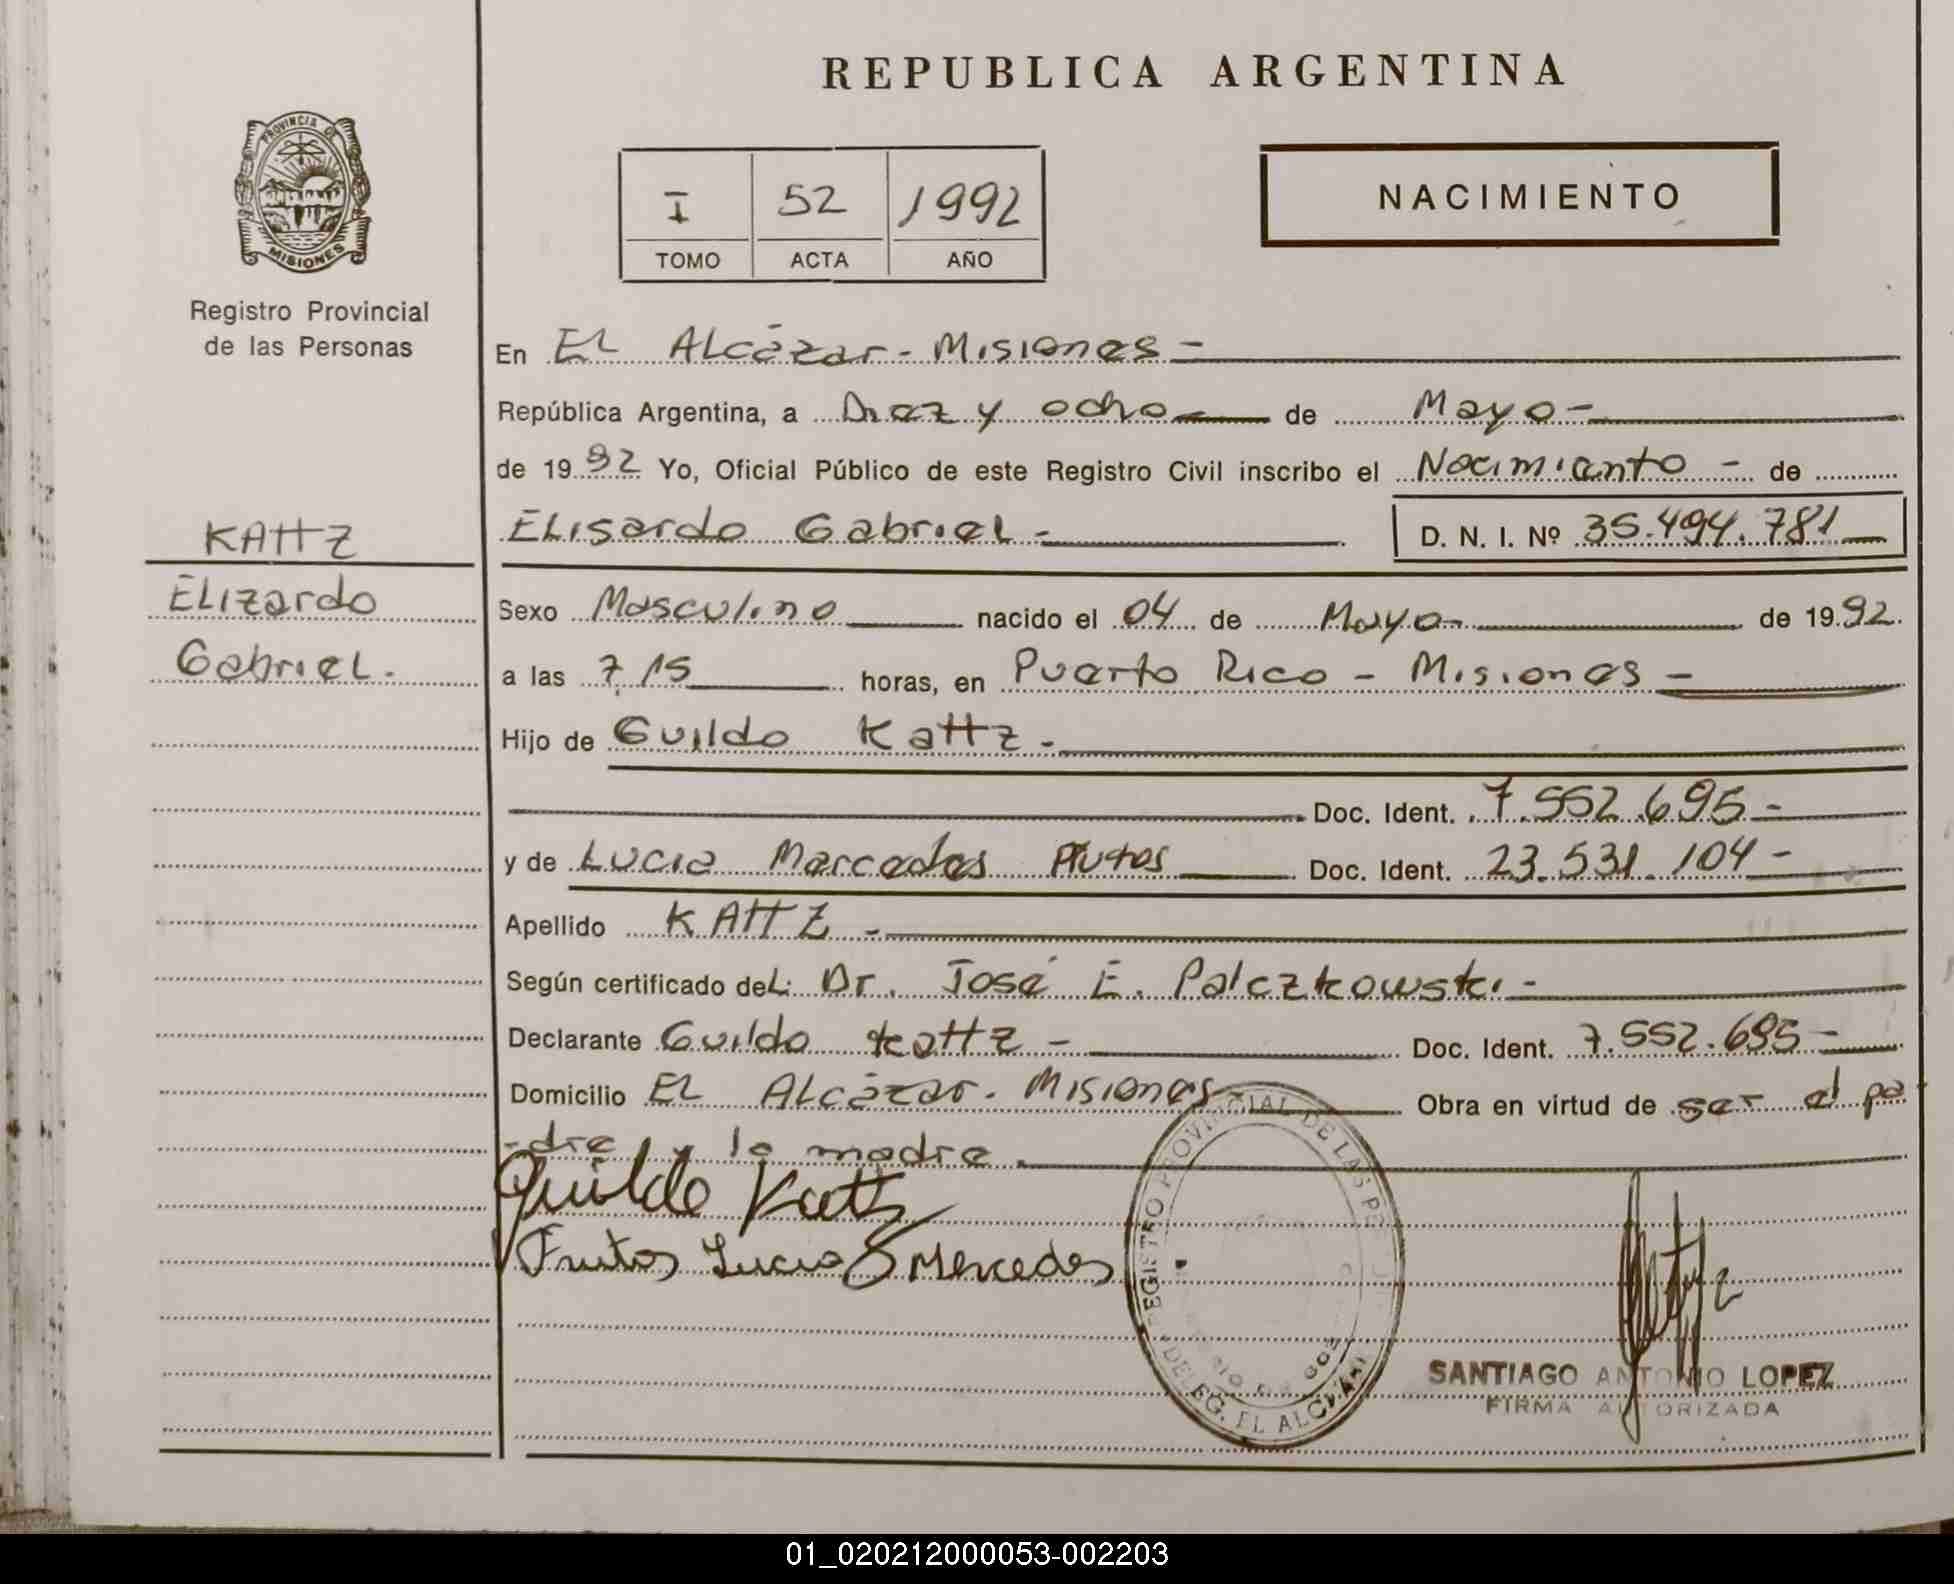 REPUBLICA ARGENTINA
PROVINCIA DE
MISIONES
Registro Provincial
de las Personas
I 52 1992
TOMO ACTA AÑO
NACIMIENTO
En El Alcázar - Misiones -
República Argentina, a Diez y ocho de Mayo -
de 1992 Yo, Oficial Público de este Registro Civil inscribo el Nacimiento - de
Elisardo Gabriel - D. N. I. Nº 35.494.781
KATTZ
Elizardo
Gabriel.
Sexo Masculino nacido el 04 de Mayo - de 1992.
a las 7,15 horas, en Puerto Rico - Misiones -
Hijo de Guildo Kattz -
Doc. Ident. 7.552.695 -
y de Lucia Mercedes Frutos Doc. Ident. 23.531.104 -
Apellido KATTZ -
Según certificado del: Dr. José E. Palczkowski -
Declarante Guildo Kattz - Doc. Ident. 7.552.695 -
Domicilio El Alcázar - Misiones Obra en virtud de ser el pa
-dre y la madre.
Guildo Kattz
Frutos Lucia Mercedes
REGISTRO PROVINCIAL DE LAS PE
DELEG. EL ALCAZAR
SANTIAGO ANTONIO LOPEZ
FIRMA AUTORIZADA
01_020212000053-002203